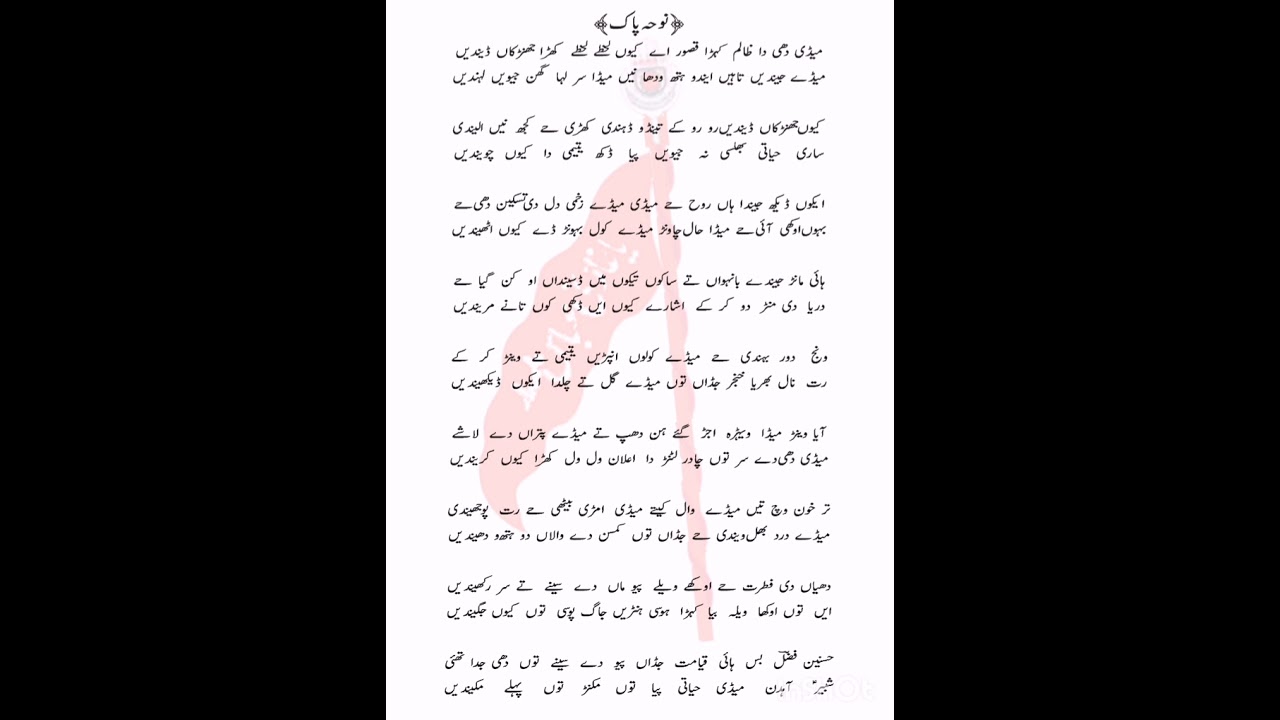 ﴿نوحہ پاک﴾
میڈی دھی دا ظالم کہڑا قصور اے کیوں لحظے لحظے کھڑا جھنڑکاں ڈیندیں
میڈے جیندیں تاہیں ایندو ہتھ ودھا نیں میڈا سر لہا گھن جیویں لہندیں
کیوں جھنڑکاں ڈیندیں رو رو کے تینڈو ڈہندی کھڑی حے کجھ نیں الیندی
ساری حیاتی بھلسی نہ جیویں پیا ڈکھ یتیمی دا کیوں چویندیں
ایکوں ڈیکھ جیندا ہاں روح حے میڈی میڈے زخمی دل دی تسکین دھی حے
بہوں اوکھی آئی حے میڈا حال چاونڑ میڈے کول بہونڑ ڈے کیوں اٹھیندیں
ہائی مانڑ جیندے بانہواں تے ساکوں تیکوں میں ڈسینداں او کن گیا حے
دریا دی منڑ دو کر کے اشارے کیوں ایں ڈکھی کوں تانے مریندیں
ونج دور بہندی حے میڈے کولوں انپڑیں یتیمی تے وینڑ کر کے
رت نال بھریا خنجر جڈاں توں میڈے گل تے چلدا ایکوں ڈیکھیندیں
آیا وینڑ میڈا ویہڑہ اجڑ گئے ہن دھپ تے میڈے پتراں دے لاشے
میڈی دھی دے سر توں چادر لٹنڑ دا اعلان ول ول کھڑا کیوں کریندیں
تر خون وچ تیں میڈے وال کیتے میڈی امڑی بیٹھی حے رت پوجھیندی
میڈے درد بھل ویندی حے جڈاں توں کمسن دے والاں دو ہتھ ودھیندیں
دھیاں دی فطرت حے اوکھے ویلے پیو ماں دے سینے تے سر رکھیندیں
ایں توں اوکھا ویلہ بیا کہڑا ہوسی ہنڑیں جاگ پوسی توں کیوں جگیندیں
حسنین فضلؔ بس ہائی قیامت جڈاں پیو دے سینے توں دھی جدا تھئی
شبیرؑ آہدن میڈی حیاتی پیا توں مکنڑ توں پہلے مکیندیں